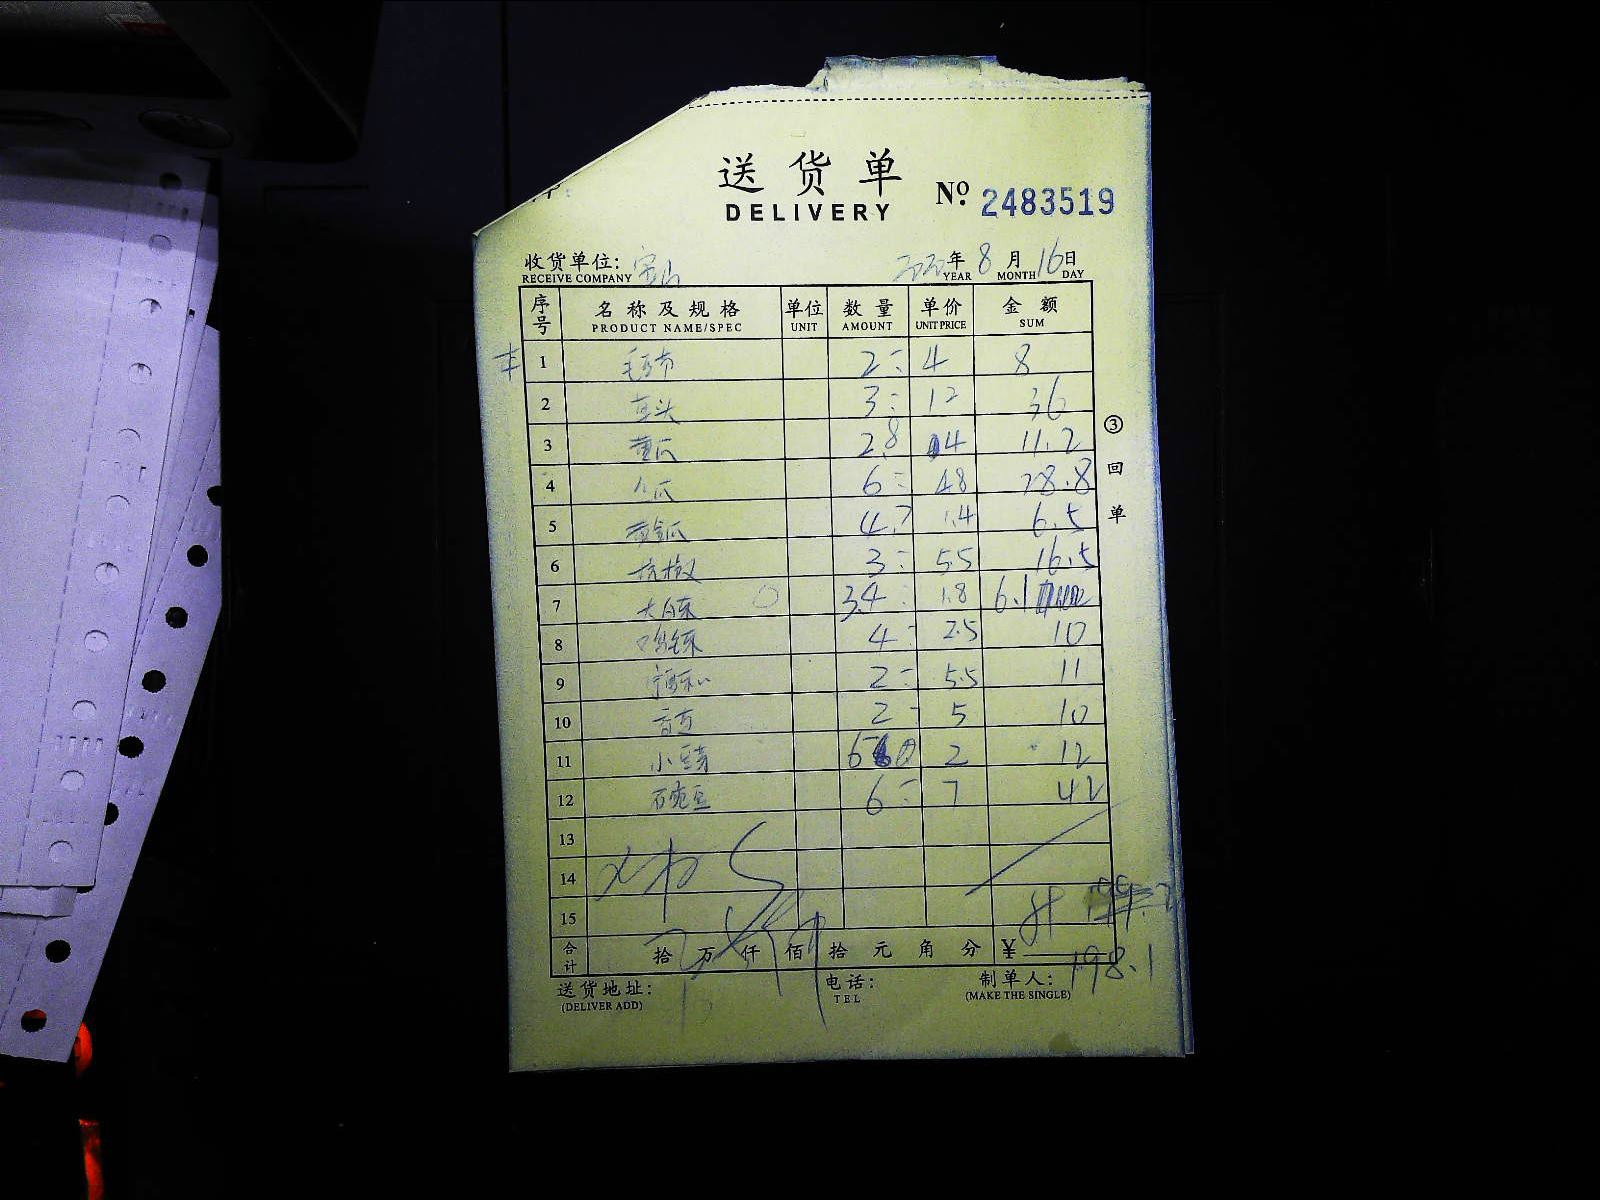 送货单
DELIVERY
No. 2483519
收货单位: 年 8 月 16 日
RECEIVE COMPANY YEAR MONTH DAY
序号 名称及规格 单位 数量 单价 金额
PRODUCT NAME/SPEC UNIT AMOUNT UNIT PRICE SUM
1 2 4 8
2 3 12 36
3 黄瓜 2.8 4 11.2
4 瓜 6 4.8 28.8
5 黄金瓜 4.7 1.4 6.5
6 杭椒 3 5.5 16.5
7 大白菜 3.4 1.8 6.1
8 4 2.5 10
9 2 5.5 11
10 2 5 10
11 小豆芽 6 2 12
12 豆 6 7 42
13
14
15
合计 拾 万 仟 佰 拾 元 角 分 ¥ 198.1
送货地址: 电话: 制单人:
(DELIVER ADD) TEL (MAKE THE SINGLE)
③回单